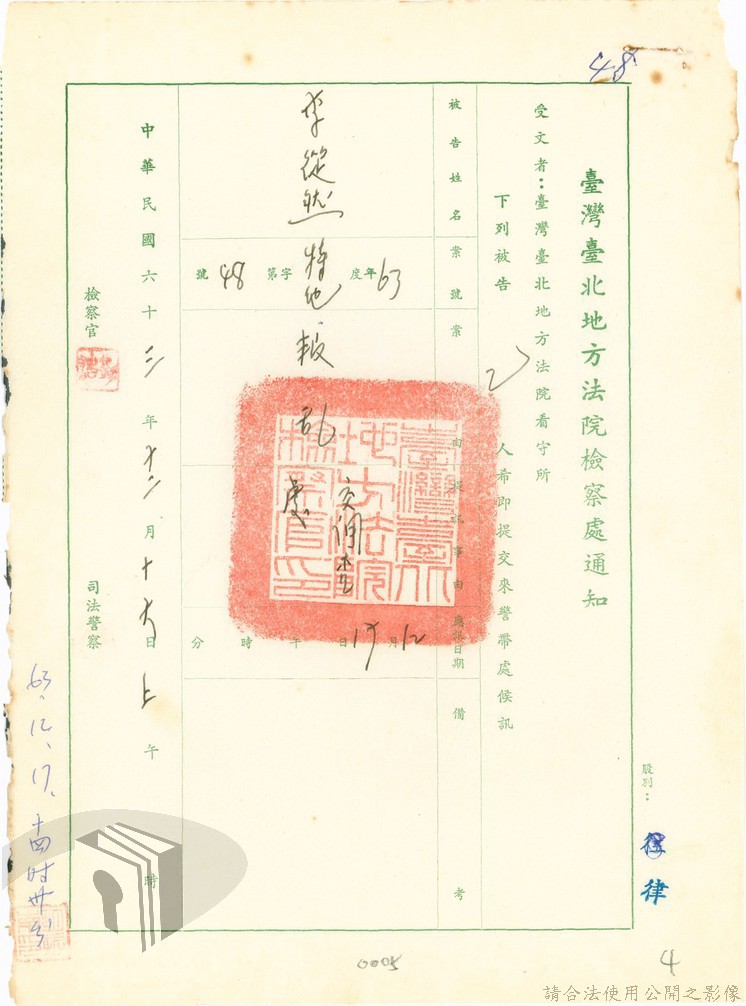 48
臺灣臺北地方法院檢察處通知
股別：
律
受文者：臺灣臺北地方法院看守所
下列被告 乙 人希即提交來警帶處候訊
被告姓名 案號 案由 提訊事由 應訊日期 備考
李從然
63年度特他字第48號
叛亂
12月17日午時分
臺灣臺北地方法院檢察官印
中華民國六十三年十二月十六日上午時
檢察官
司法警察
63、12、17、十四时卅分
0005
4
請合法使用公開之影像